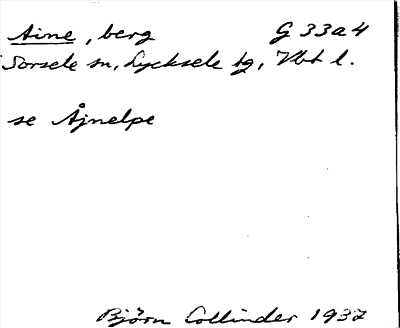 Aine, berg G 33a4
Sorsele sn, Lycksele tg, Vbt l.
se Åjnelpe
Björn Collinder 1937